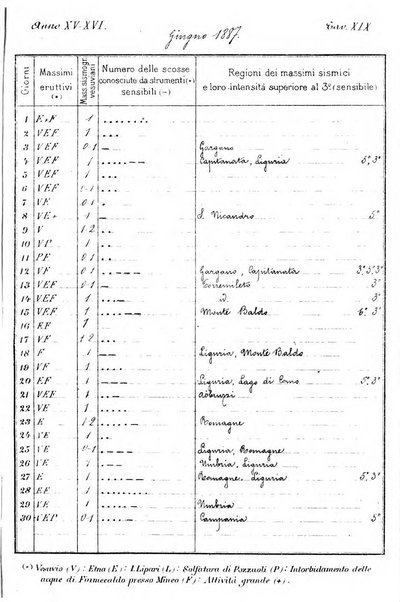 Anno XV-XVI. Tav. XIX
Giugno 1887.
Giorni Massimi eruttivi (•) Mass. sismogr. vesuviani Numero delle scosse conosciute da strumenti (•) sensibili (–) Regioni dei massimi sismici e loro intensità superiore al 3° (sensibile)
1 E,F 1
2 VEF 1
3 VEF 0-1 Gargano
4 VEF 1 Capitanata, Liguria 5°, 3°
5 VEF 1
6 VEF 0-1
7 VE 0-1
8 VE+ 1 S. Nicandro 5°
9 V 1-2
10 VP 1
11 PF 0-1
12 VF 0-1 Gargano, Capitanata 3°, 3°, 3°
13 VEF 0-1 Torremileto 3°
14 VEF 1 id. 3°
15 VEF 1 Monte Baldo 6°, 3°
16 EF 1
17 VF 1-2
18 F 1 Liguria, Monte Baldo
19 VF 1
20 EF 1 Liguria, Lago di Como 5°, 3°
21 VEF 1 Abruzzi
22 VE 1
23 E 1-2 Romagne
24 VE 1
25 VE 0-1 Liguria, Romagne
26 VE 1 Umbria, Liguria
27 E 1 Romagne, Liguria 5°, 3°
28 EF 1
29 VE 1 Umbria
30 VEP 0-1 Campania 5°
(•) Vesuvio (V): Etna (E): I. Lipari (L): Solfatara di Pozzuoli (P): Intorbidamento delle
acque di Formecaldo presso Mineo (F): Attività grande (+).